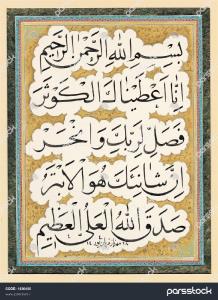 بسم الله الرحمن الرحيم
إنا أعطيناك الكوثر
فصل لربك وانحر
إن شانئك هو الأبتر
صدق الله العلي العظيم
parsstock